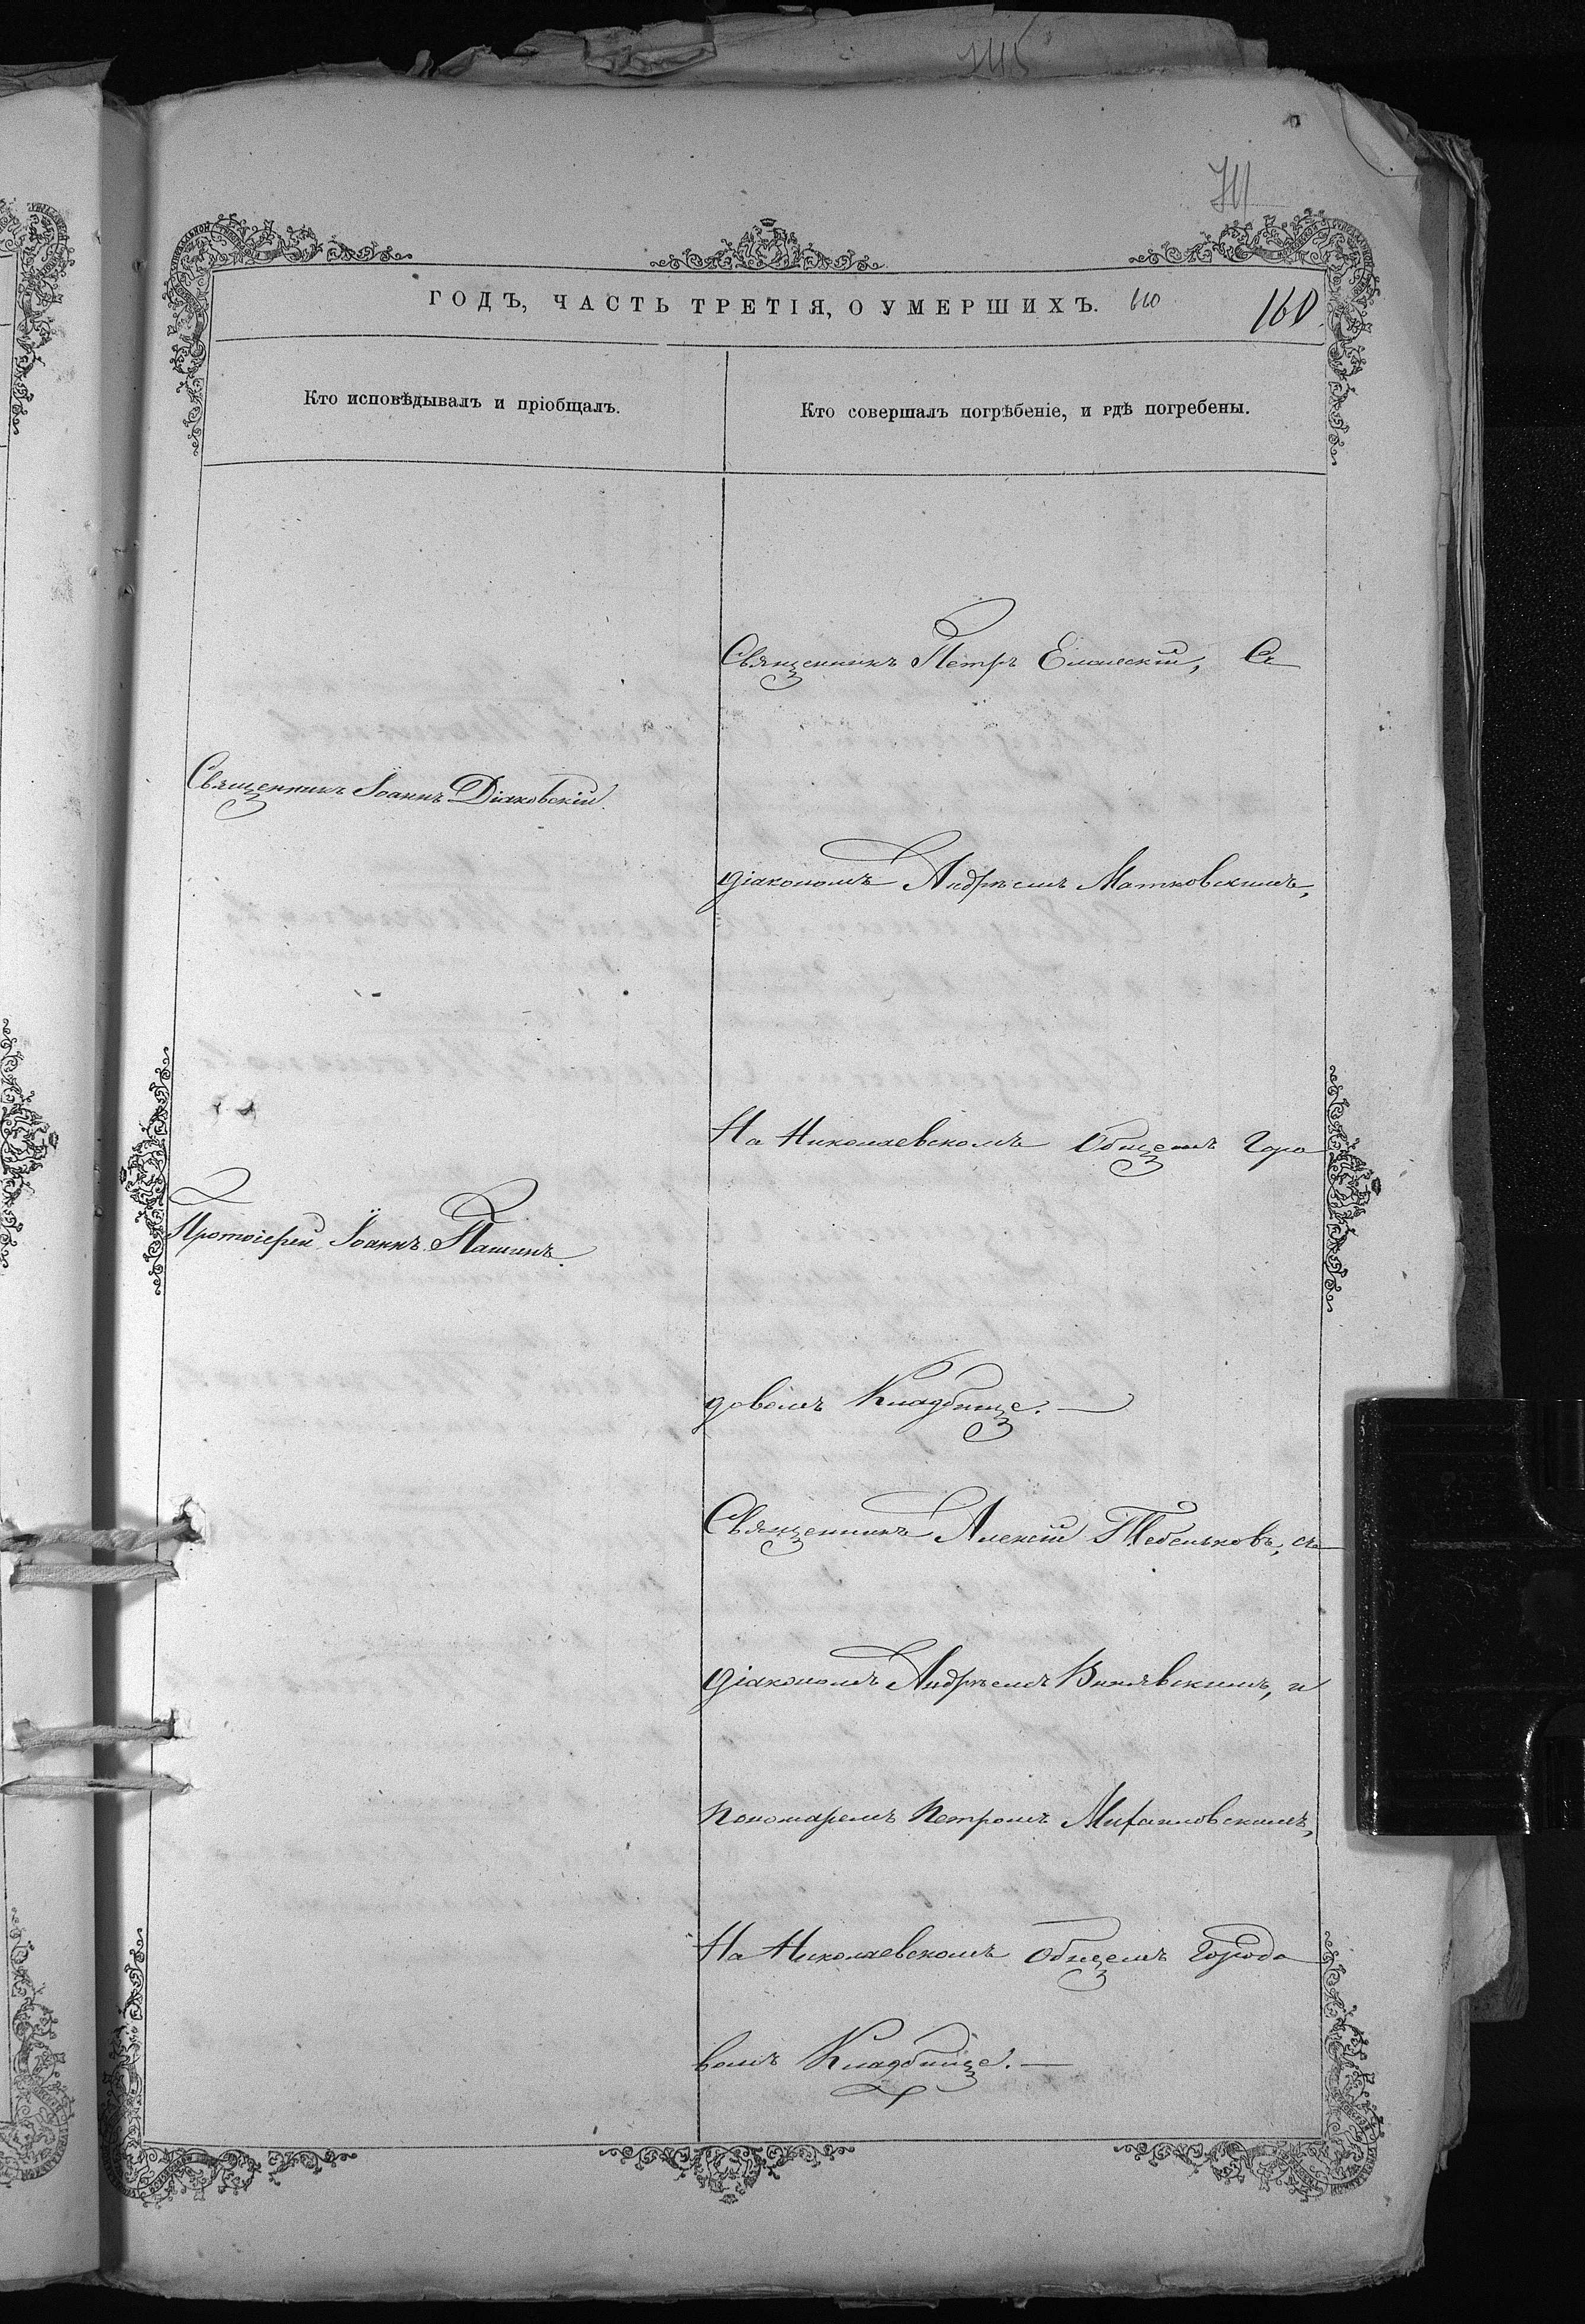 145
711
ГОДЪ, ЧАСТЬ ТРЕТІЯ, О УМЕРШИХЪ. 160
160.
Кто исповѣдывалъ и пріобщалъ.
Кто совершалъ погрѣбеніе, и гдѣ погребены.
Священникъ Іоаннъ Діаковскій.
Протоіерей Іоаннъ Пашинъ.
Священникъ Петръ Еланскій, Съ
діакономъ Андреемъ Матковскимъ,
На Николаевскомъ Общемъ Горо
довомъ Кладбище. —
Священникъ Алексій Тебеньковъ, съ
діакономъ Андреемъ Винявскимъ, и
Пономаремъ Петромъ Михаиловскимъ,
На Николаевскомъ Общемъ Городо
вомъ Кладбище. —